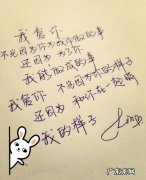 我爱你
不光因为你为我所做的事
还因为 为了你
我能做成的事
我爱你 不光因为你的样子
还因为 和你在一起时
我的样子